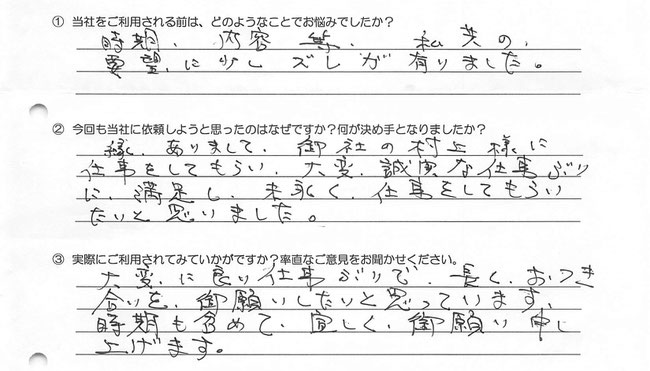 ① 当社をご利用される前は、どのようなことでお悩みでしたか?
時期、内容等、私共の、
要望、に少しズレが有りました。
② 今回も当社に依頼しようと思ったのはなぜですか?何が決め手となりましたか?
縁、ありまして、御社の村上様に
仕事をしてもらい、大変、誠実な仕事ぶり
に、満足し、末永く、仕事をしてもらい
たいと思いました。
③ 実際にご利用されてみていかがですか?率直なご意見をお聞かせください。
大変、に良い仕事ぶりで、長く、おつき
合いを、御願いしたいと思っています、
時期も含めて、宜しく、御願い申し
上げます。